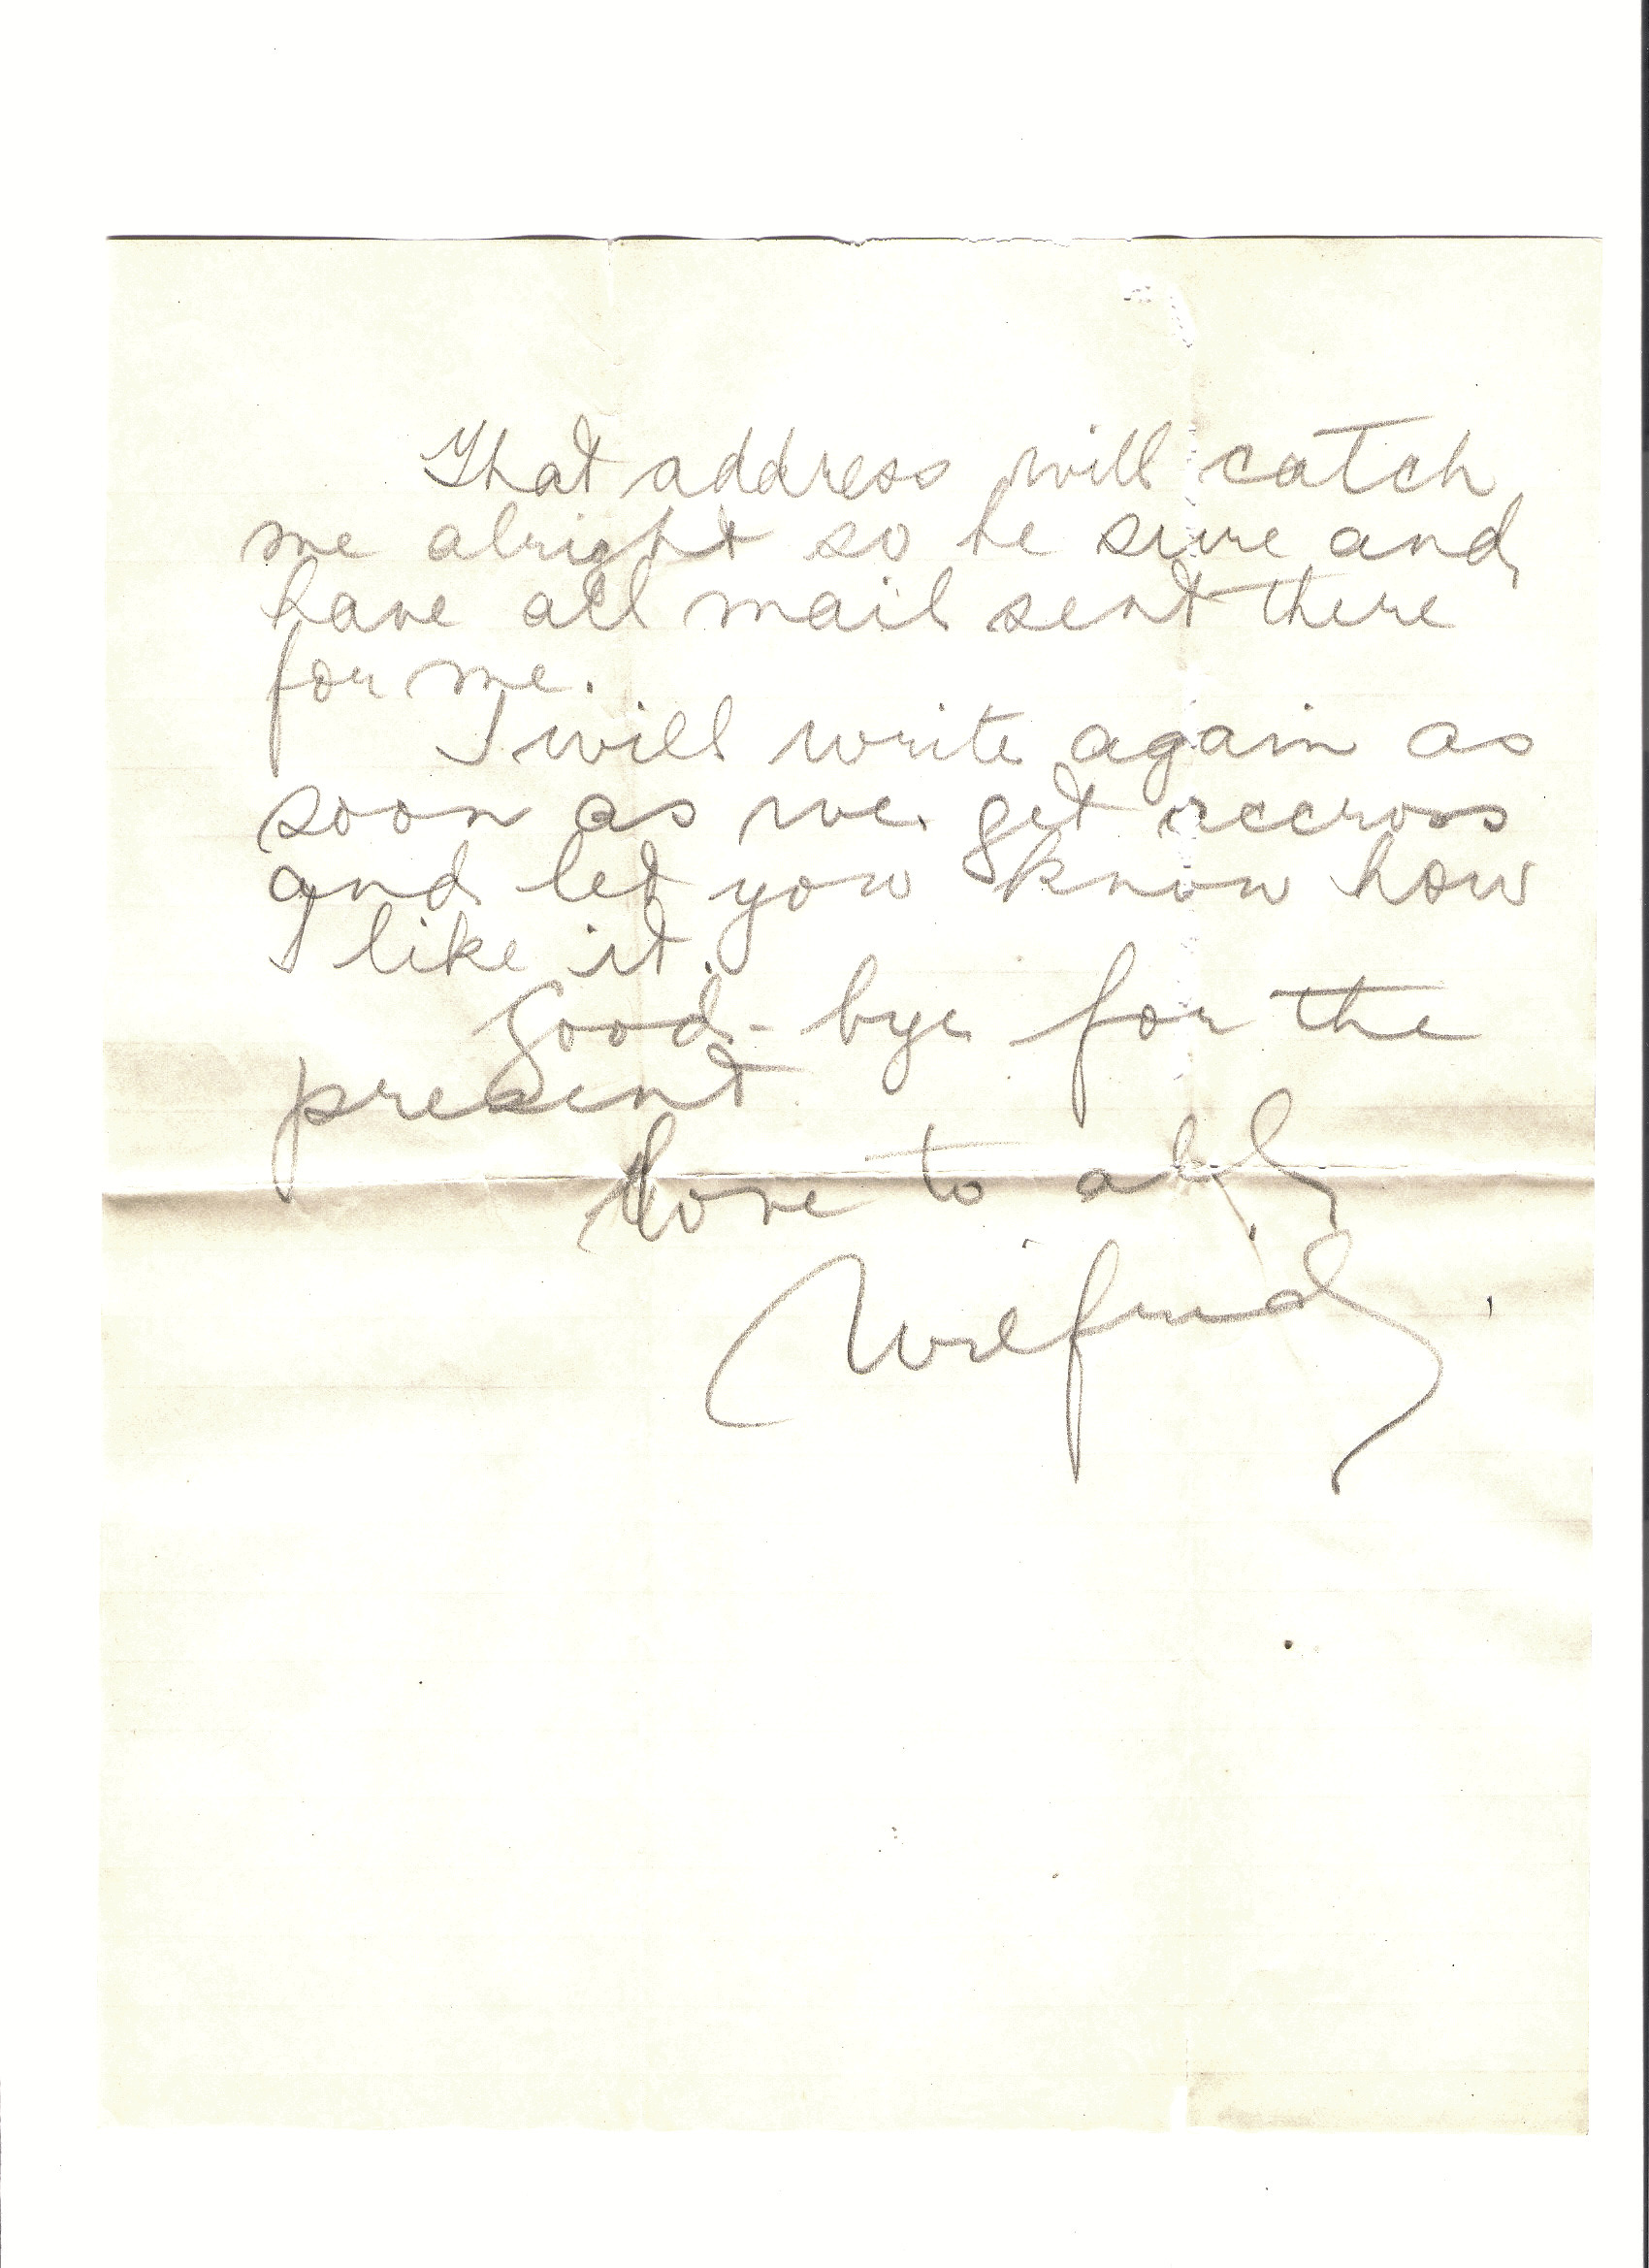 That address will catch
me alright so be sure and
have all mail sent there
for me.
I will write again as
soon as we get accross
and let you know how
I like it.
Good-bye for the
present
Love to all
Wilfrid